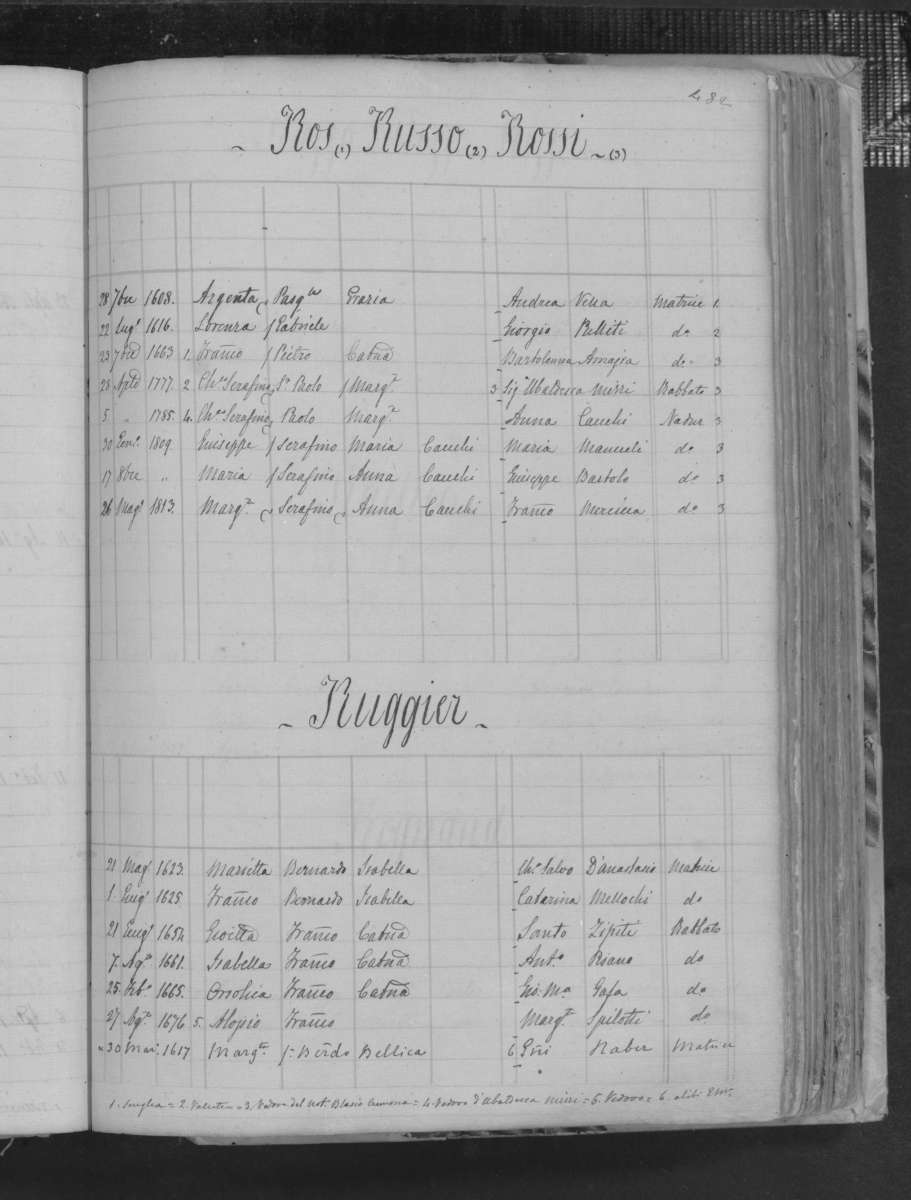 482
Ros (1) Russo (2) Rossi (3)
28 7bre 1608. Argenta Pasq^le Grazia Andrea Vella Matrice 1
22 Lug^o 1616. Lorenza f Gabriele Giorgio Do 2
23 7bre 1663 1. Franco f Pietro Catna Bartolomea do 3
28 1777. 2 Ch^co Serafino S^r Paolo f Marg^ta 3 Sig Ubaldesca Mizzi Rabbato 3
5 " 1785. 4. Ch^co Serafino Paolo Marg^ta Anna Cauchi Nadur 3
30 Genn^o 1809. Giuseppe f Serafino Maria Cauchi Maria do 3
17 8bre " Maria f Serafino Anna Cauchi Giuseppe Bartolo do 3
26 Mag^o 1813. Marg^ta Serafino Anna Cauchi Franco Mercieca do 3
Ruggier
21 Mag^o 1623. Marietta Bernardo Isabella Ch^o Salvo D'anastasio Matrice
1. Giug^o 1625 Franco Bernardo Isabella Catarina Mellochi do
21 Giug^o 1654 Franco Catna Santo Rabbato
7. Ag^o 1661. Isabella Franco Catna Ant^o do
25. Feb^o 1665. Orsolica Franco Catna Gio. M^a Gafa do
27 Ag^o 1676 5. Aloysio Franco Marg^ta Spilotti do
30 Mar. 1617 Marg^ta f: Berdo Bellica 6 Gni Matrice
1. = 2. = 3. Vedova del Not. Blasio = 4. Vedovo d'Ubaldesca Mizzi = 5. Vedovo = 6. alibi